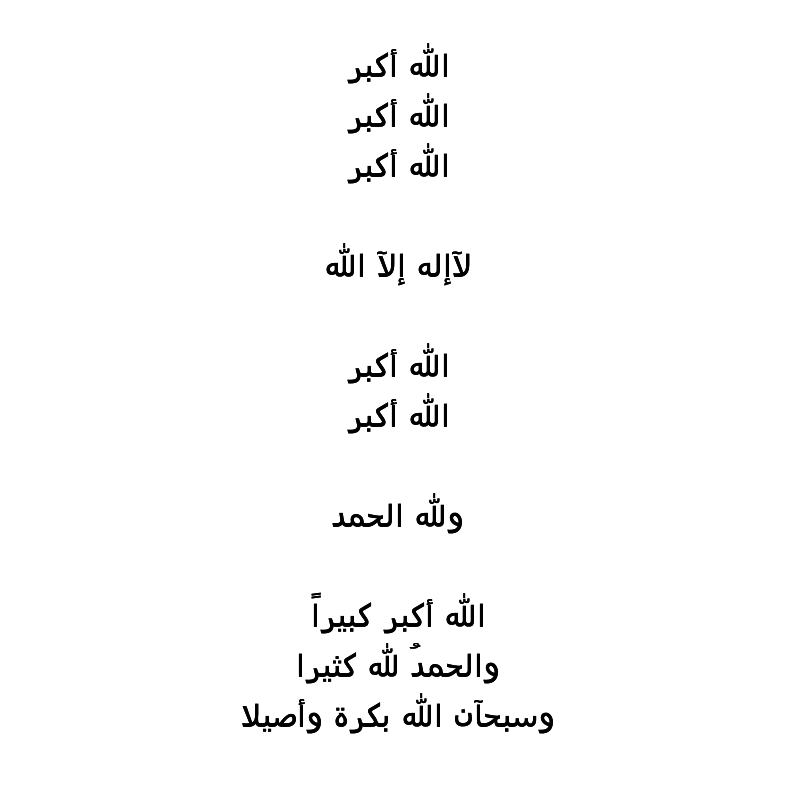 الله أكبر
الله أكبر
الله أكبر
لآإله إلآ الله
الله أكبر
الله أكبر
ولله الحمد
الله أكبر كبيراً
والحمدُ لله كثيرا
وسبحآن الله بكرة وأصيلا